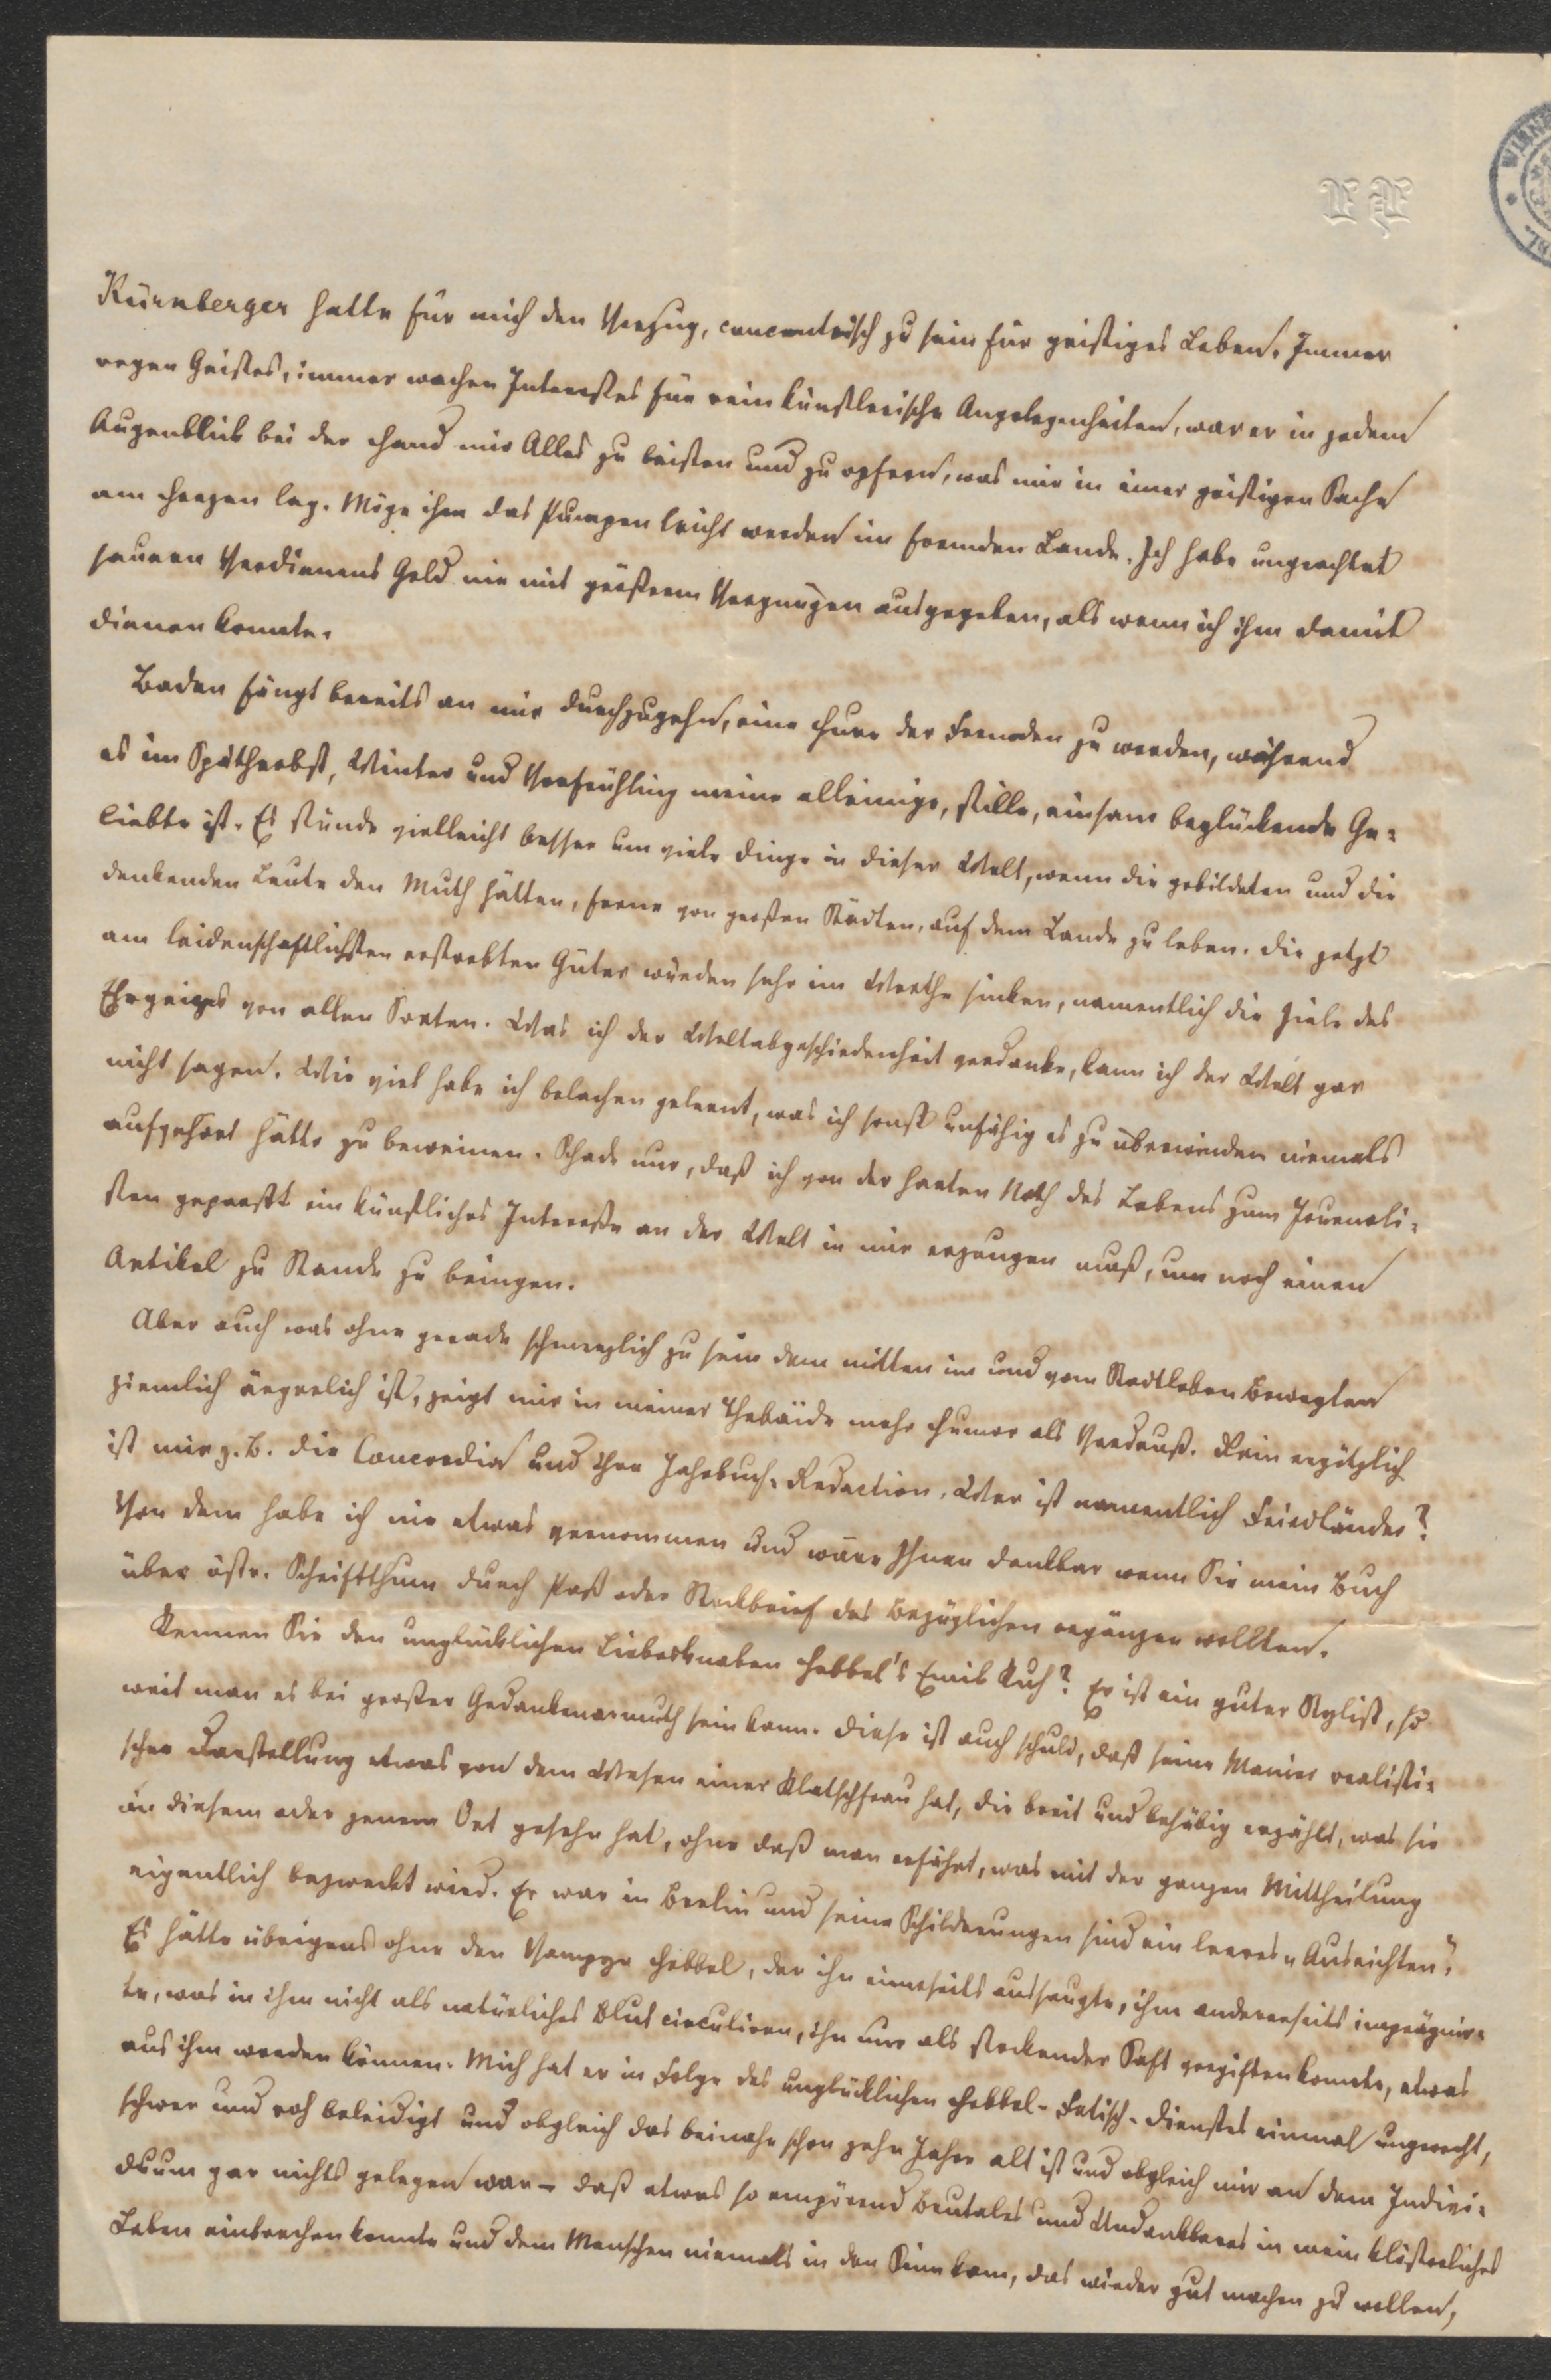 WIENER
BL.
Kürnberger hatte für mich den Vorzug, concentrisch zu sein für geistiges Leben. Immer
regen Geistes, immer wachen Interesses für rein künstlerische Angelegenheiten, war er in jedem
Augenblick bei der Hand mir Alles zu leisten und zu opfern, was mir in einer geistigen Sache
am Herzen lag. Möge ihm das Pumpen leicht werden im fremden Lande. Ich habe ungeachtet
sauren Verdienens Geld nie mit größrem Vergnügen ausgegeben, als wenn ich ihm damit
dienen konnte.
Baden fängt bereits an mir durchzugehn, eine Hure der Fremden zu werden, während
es im Spätherbst, Winter und Vorfrühling meine alleinige, stille, einsam beglückende Ge-
liebte ist. Es stünde vielleicht besser um viele Dinge in dieser Welt, wenn die gebildeten und die
denkenden Leute den Muth hätten, ferne von großen Städten, auf dem Lande zu leben. Die jetzt
am leidenschaftlichsten erstrebten Güter würden sehr im Werthe sinken, namentlich die Ziele des
Ehrgeizes von allen Sorten. Was ich der Weltabgeschiedenheit verdanke, kann ich der Welt gar
nicht sagen. Wie viel habe ich belachen gelernt, was ich sonst unfähig es zu überwinden niemals
aufgehört hätte zu beweinen. Schade nur, daß ich von der harten Noth des Lebens zum Journali-
sten gepreßt ein künstliches Interesse an der Welt in mir erzeugen muß, um noch einen
Artikel zu Stande zu bringen.
Aber auch was ohne gerade schmerzlich zu sein dem mitten im und vom Stadtleben Bewegten
ziemlich ärgerlich ist, zeigt mir in meiner Thebäide mehr Humor als Verdruß. Rein ergötzlich
ist mir z. B. die Concordia und ihre Jahrbuch-Redaction. Wer ist namentlich Friedländer?
Von dem habe ich nie etwas vernommen und wäre Ihnen dankbar wenn Sie mein Buch
über östr. Schriftthum durch Paß oder Steckbrief des Bezüglichen ergänzen wollten.
Kennen Sie den unglücklichen Liebesknaben Hebbel's Emil Kuh? Er ist ein guter Stylist, so
weit man es bei großer Gedankenarmuth sein kann. Diese ist auch schuld, daß seine Manier realisti-
scher Darstellung etwas von dem Wesen einer Klatschfrau hat, die breit und behäbig erzählt, was sie
an diesem oder jenem Ort gesehn hat, ohne daß man erfährt, was mit der ganzen Mittheilung
eigentlich bezweckt wird. Er war in Berlin und seine Schilderungen sind ein leeres „Ausrichten".
Es hätte übrigens ohne den Vampyr Hebbel, der ihn einerseits aussaugte, ihm andererseits imprägnir-
te, was in ihm nicht als natürliches Blut circuliren, ihn nur als stockender Saft vergiften konnte, etwas
aus ihm werden können. Mich hat er in Folge des unglücklichen Hebbel-Fetisch-Dienstes einmal ungerecht,
schwer und roh beleidigt und obgleich das beinahe schon zehn Jahre alt ist und obgleich mir an dem Indivi-
duum gar nichts gelegen war – daß etwas so empörend Brutales und Undankbares in mein klösterliches
Leben einbrechen konnte und dem Menschen niemals in den Sinn kam, das wieder gut machen zu wollen,